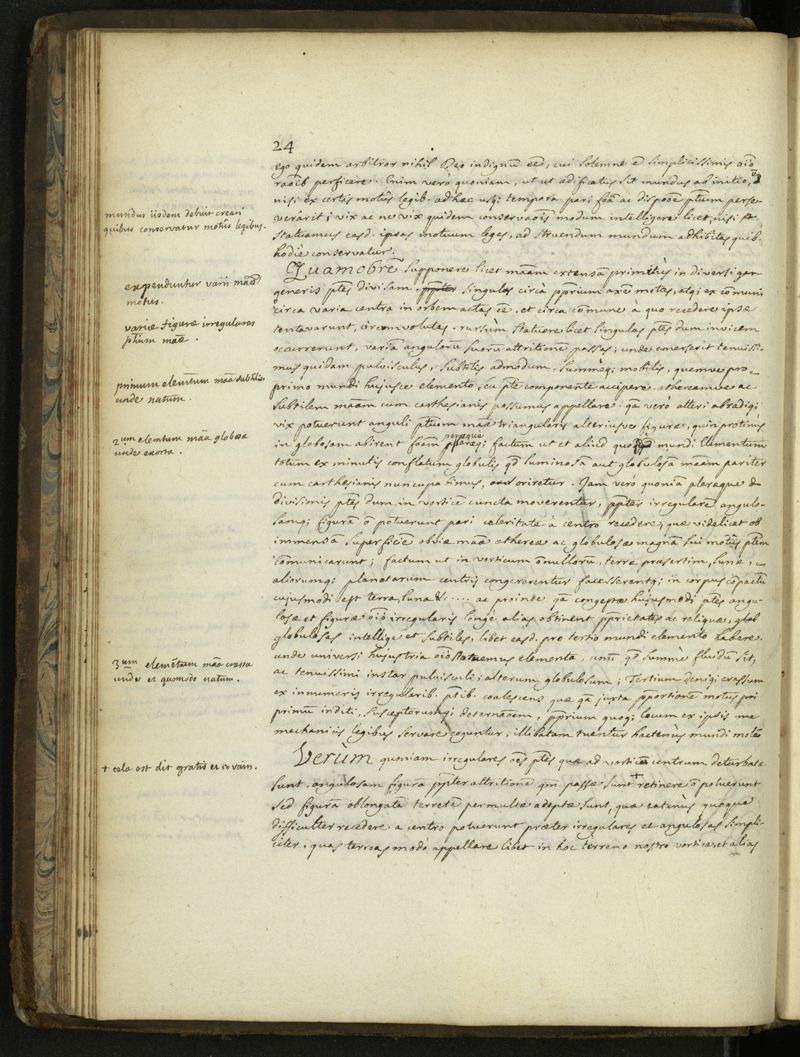 24
ego quidem arbitror nihil Deo indignū eē, cui solemne ē simplicissimis oīō
raōīb perficere. Enim verò quoniam, ut ut ædificatus sit mundus ab initio,
nisi ex certis motûs legib. ad hæc usq; tempora pari foā ac dispōe ptium perse-
verârit; vix ac ne vix quidem conservaōīs modum intelligere licet, nisi
statuamus easd. ipsas motuum leges, ad struendum mundum adhibitas quib.
hodie conservatur.
mundus iisdem debuit creari
quibus conservatur motûs legibus.
Quamobrē supponere licet maām extensā primitùs in diversi
generis ptēs divisam. singulas circà pprium axē motas, atq; ex cōmuni
circa varia centra in orbem actas eē, et circa cōmune à quo recedere ipsæ
tentavarunt, circumvolutas. rursum statuere licet singulas ptēs dum invicem
occurrerunt, variā angulorū suorū attritionē passas; unde emerserit tenuissi-
mus quidam pulvisculus, subtilis admodum, summèq; mobilis, quemve pro
primo mundi hujusce elemento, eu ptē componente accipere. æthereamve ac
subtilem maām cum carthesianis possumus appellare. qā verò atteri ab radiqi
vix potuerunt anguli ptium maæ triangularis alteriusve figuræ, quin protinùs
in globosam abirent foām pleræq; factum ut et aliud quoq; mundi Elementum
totum ex minutis conflatum globulis qd luminosā aut globulosā maām pariter
cum carthesianis nuncupa timus, oriretur. Jam verò quoniā pleræque
divisimis ptēs dum in vortice cuncta moverentur, ppter irregularē angulo-
samq; figurā ō potuerunt pari celeritate à centro recedere, quæ videlicet ob
immensā superficiē obviæ maæ æthereæ ac globulosæ magnā sui motûs ptēm
cōmunicarunt; factum ut in vorticum ōnullorū, terræ præsertim, lunæ,
aliorumq; planetarum centris congererentur facesserentq; in corpus cōpactū
cujusmodi est terra, luna &. .... ac proinde qā congestæ hujusmodi ptēs angu-
losæ et figuræ oīō irregularis longè alias obtinent pprietates ac reliquæ, glob
globulosas intellige et subtiles, libet easd. pro tertio mundi elemento habere.
unde universi hujus tria oīō statuemus elementa, unū qd summè fluidū sit,
ac tenuissimi instar pulvisculi; alterum globulosum; Tertium deniq; crassum
ex innumeris irregularib. ptib. coalescens quæ qā juxta pportionē motûs
primùm inditi, susceptorumq; determāōem, pprium quoq; locum ex ipsis me
mechanicis legibus servare coguntur, illibatam tuentur hactenùs mundi molē
expenduntur varii maæ
motus.
variæ figuræ irregulares
ptium maæ.
primum elemētum maā subtilis
unde natum.
2.um elemtum māa globosa
unde exorta.
3um elemētum māa crassa
unde et quomodo natum.
Verùm quoniam irregulares oēs ptēs quæ ad vorticis centrum deturbatæ
sunt, angulosam figurā ppter attritionē qm passæ sunt + retinere ō potuerunt
sed figurā oblongatā teretē permultæ adeptæ sunt, quæ eatenùs quoque
difficulter recedere a centro potuerunt præter irregulares et angulosas simpli-
citer, quas terreas modò appellare libet in hoc terreno nostro vortice, et alias
+ celà est dit gratis et en vain.